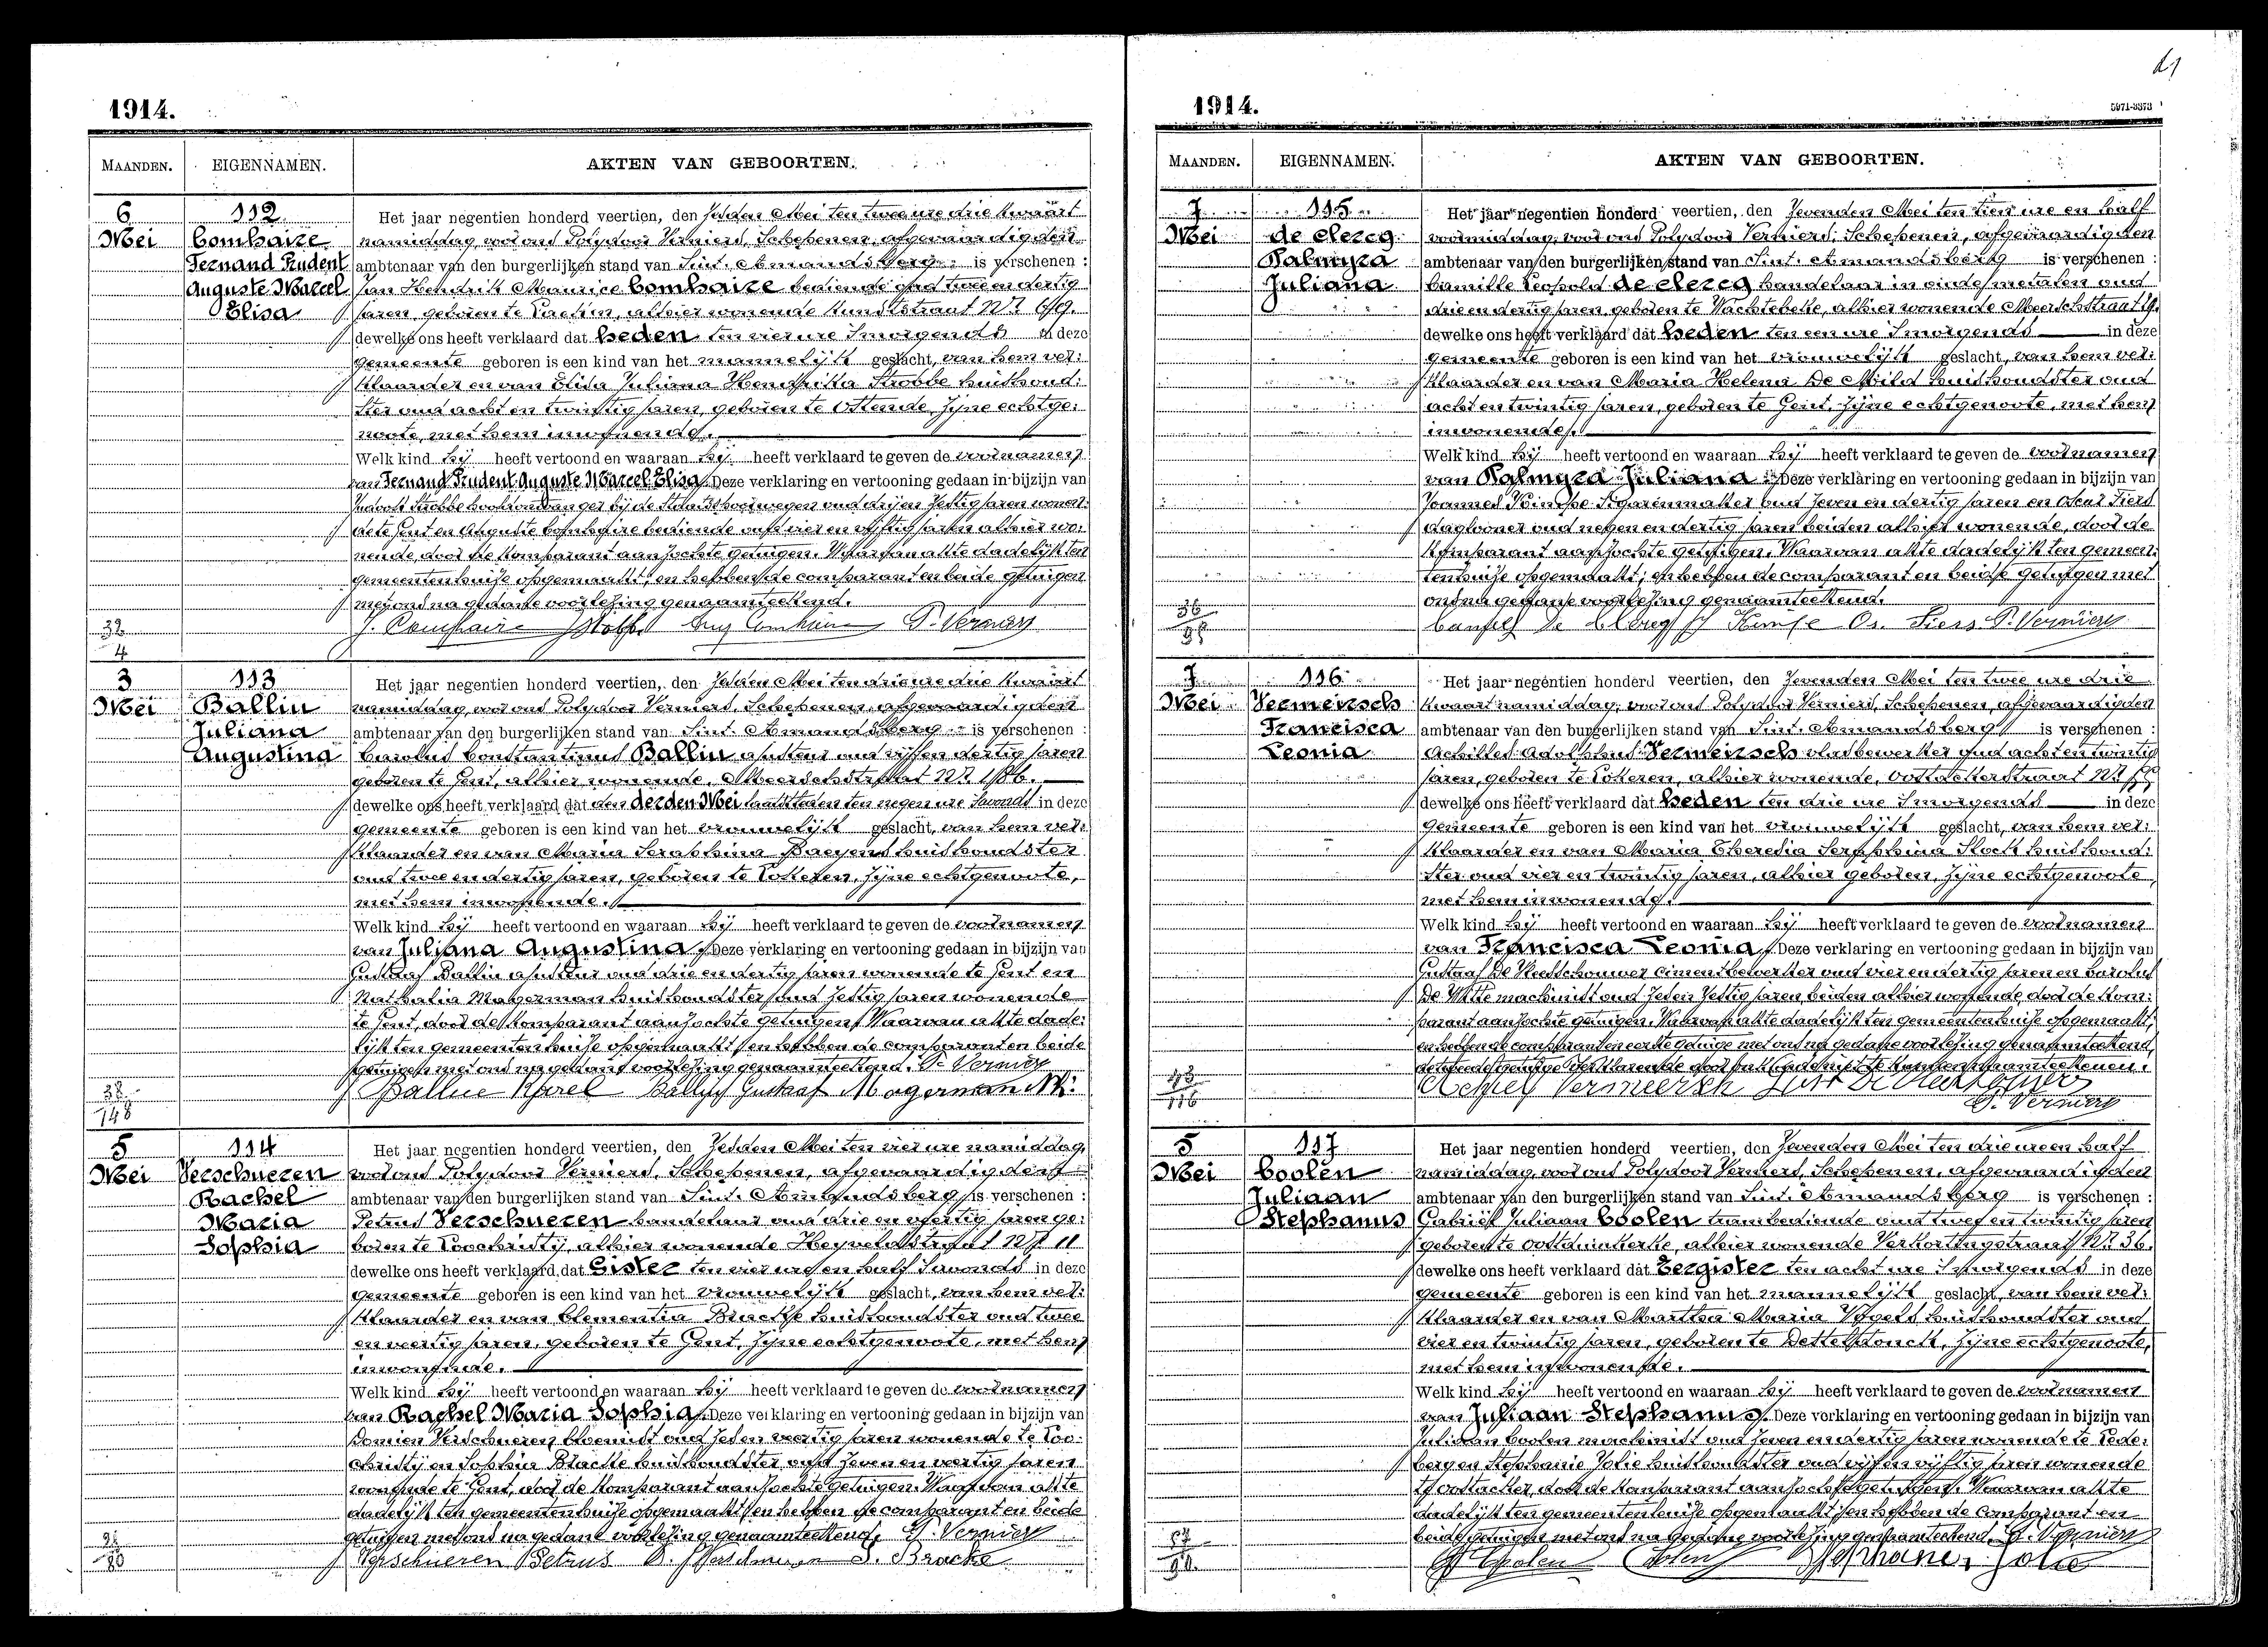 1914.
MAANDEN. EIGENNAMEN. AKTEN VAN GEBOORTEN.
6 112 Het jaar negentien honderd veertien, den zesden Mei ten twee ure drie kwaart
Mei Comhaire namiddag, voor ons Polydoor Verniers, Schepenen, afgevaardigden
Fernand Prudent ambtenaar van den burgerlijken stand van Sint. Amandsberg is verschenen :
Auguste Marcel Jan Hendrik Maurice Comhaire bediende oud twee en dertig
Elisa jaren, geboren te alhier wonende
dewelke ons heeft verklaard dat heden ten vier ure 's morgends in deze
gemeente geboren is een kind van het mannelijk geslacht, van hem ver:
klaarder en van Elisa Juliana Hendrika Strobbe huishoud:
ster oud acht en twintig jaren, geboren te Ostende, zijne echtge:
noote, met hem inwonende.
Welk kind hij heeft vertoond en waaraan hij heeft verklaard te geven de voornamen
van Fernand Prudent Auguste Marcel Elisa. Deze verklaring en vertooning gedaan in bijzijn van
Strobbe bij de Staatsspoorwegen oud drij en zestig jaren wonen:
de te Gent en Auguste Comhaire bediende oud vier en vijftig jaren alhier wo:
nende, door de komparant aanzochte getuigen. Waarvan akte dadelijk ten
gemeentenhuize opgemaakt; en hebben de comparant en beide getuigen
met ons na gedane voorlezing genaamteekend.
32 J. Comhaire Strobbe Aug Comhaire P. Verniers
4
3 113 Het jaar negentien honderd veertien, den zesden Mei ten drie ure drie kwaart
Mei Ballin namiddag, voor ons Polydoor Verniers, Schepenen, afgevaardigden
Juliana ambtenaar van den burgerlijken stand van Sint. Amandsberg is verschenen :
Augustina Carolus Constantinus Ballin ajusteur oud vijf en dertig jaren
geboren te Gent, alhier wonende, Meerschstraat Nr 186.
dewelke ons heeft verklaard dat den derden Mei laatstleden ten negen ure 's avonds in deze
gemeente geboren is een kind van het vrouwelijk geslacht, van hem ver:
klaarder en van Maria Seraphina Baeyens huishoudster
oud twee en dertig jaren, geboren te Lokeren, zijne echtgenoote,
met hem inwonende.
Welk kind hij heeft vertoond en waaraan hij heeft verklaard te geven de voornamen
van Juliana Augustina. Deze verklaring en vertooning gedaan in bijzijn van
Gustaaf Ballin ajusteur oud drie en dertig jaren wonende te Gent en
Nathalia Magerman huishoudster oud zestig jaren wonende
te Gent, door de komparant aanzochte getuigen. Waarvan akte dade:
lijk ten gemeentenhuize opgemaakt; en hebben de comparant en beide
getuigen met ons na gedane voorlezing genaamteekend. P. Verniers
38 Ballin Karel Ballin Gustaf Magerman N.
148
5 114 Het jaar negentien honderd veertien, den zesden Mei ten vier ure namiddag,
Mei Verschueren voor ons Polydoor Verniers, Schepenen, afgevaardigden
Rachel ambtenaar van den burgerlijken stand van Sint. Amandsberg is verschenen :
Maria Petrus Verschueren handelaar oud drie en veertig jaren ge:
Sophia boren te Loochristy, alhier wonende Heyveldstraat Nr 11
dewelke ons heeft verklaard dat Gister ten vier ure en half 's avonds in deze
gemeente geboren is een kind van het vrouwelijk geslacht, van hem ver:
klaarder en van Clementia Bracke huishoudster oud twee
en veertig jaren, geboren te Gent, zijne echtgenoote, met hem
inwonende.
Welk kind hij heeft vertoond en waaraan hij heeft verklaard te geven de voornamen
van Rachel Maria Sophia. Deze verklaring en vertooning gedaan in bijzijn van
Domien Verschueren bloemist oud zes en veertig jaren wonende te Loo:
christij en Sophia Bracke huishoudster oud zeven en veertig jaren
wonende te Gent, door de komparant aanzochte getuigen. Waarvan akte
dadelijk ten gemeentenhuize opgemaakt; en hebben de comparant en beide
getuigen met ons na gedane voorlezing genaamteekend. P. Verniers
Verschueren Petrus D. Verschueren S. Bracke
80
1914.
5971-3373
MAANDEN. EIGENNAMEN. AKTEN VAN GEBOORTEN.
7 115 Het jaar negentien honderd veertien, den zevenden Mei ten tien ure en half
Mei de Clercq voormiddag, voor ons Polydoor Verniers, Schepenen, afgevaardigden
Palmyra ambtenaar van den burgerlijken stand van Sint. Amandsberg is verschenen :
Juliana Camille Leopold de Clercq handelaar in oude metalen oud
drie en dertig jaren, geboren te Wachtebeke, alhier wonende Meerschstraat
dewelke ons heeft verklaard dat heden ten een ure 's morgends in deze
gemeente geboren is een kind van het vrouwelijk geslacht, van hem ver:
klaarder en van Maria Helena De Mild huishoudster oud
acht en twintig jaren, geboren te Gent, zijne echtgenoote, met hem
inwonende.
Welk kind hij heeft vertoond en waaraan hij heeft verklaard te geven de voornamen
van Palmyra Juliana. Deze verklaring en vertooning gedaan in bijzijn van
Joannes sigarenmaker oud zeven en dertig jaren en Oscar Siers
daglooner oud negen en dertig jaren beiden alhier wonende, door de
komparant aanzochte getuigen. Waarvan akte dadelijk ten gemeen:
tenhuize opgemaakt; en hebben de comparant en beide getuigen met
ons na gedane voorlezing genaamteekend.
36 Camiel De Clercq Os. Siers P. Verniers
7 116 Het jaar negentien honderd veertien, den zevenden Mei ten twee ure drie
Mei Vermeirsch kwaart namiddag, voor ons Polydoor Verniers, Schepenen, afgevaardigden
Francisca ambtenaar van den burgerlijken stand van Sint. Amandsberg is verschenen :
Leonia Achilles Adolphus Vermeirsch vlasbewerker oud acht en twintig
jaren, geboren te Lokeren, alhier wonende, Oostackerstraat Nr
dewelke ons heeft verklaard dat heden ten drie ure 's morgends in deze
gemeente geboren is een kind van het vrouwelijk geslacht, van hem ver:
klaarder en van Maria Theresia Seraphina Stock huishoud:
ster oud vier en twintig jaren, alhier geboren, zijne echtgenoote,
met hem inwonende.
Welk kind hij heeft vertoond en waaraan hij heeft verklaard te geven de voornamen
van Francisca Leonia. Deze verklaring en vertooning gedaan in bijzijn van
Gustaaf De cimentbewerker oud vier en dertig jaren en Carolus
De Witte machinist oud zes en zestig jaren, beiden alhier wonende, door de kom:
parant aanzochte getuigen. Waarvan akte dadelijk ten gemeentenhuize opgemaakt;
en hebben de comparant en eerste getuige met ons na gedane voorlezing genaamteekend,
de tweede getuige verklarende niet te kunnen naamteekenen.
43 Achiel Vermeersch
116 P. Verniers
5 117 Het jaar negentien honderd veertien, den zevenden Mei ten drie ure en half
Mei Coolen namiddag, voor ons Polydoor Verniers, Schepenen, afgevaardigden
Juliaan ambtenaar van den burgerlijken stand van Sint. Amandsberg is verschenen :
Stephanus Gabriël Juliaan Coolen trambediende oud twee en twintig jaren
geboren te Oostduinkerke, alhier wonende Verkortingstraat Nr 36.
dewelke ons heeft verklaard dat Eergister ten acht ure 's morgends in deze
gemeente geboren is een kind van het mannelijk geslacht, van hem ver:
klaarder en van Martha Maria huishoudster oud
vier en twintig jaren, geboren te Destelbergen, zijne echtgenoote,
met hem inwonende.
Welk kind hij heeft vertoond en waaraan hij heeft verklaard te geven de voornamen
van Juliaan Stephanus. Deze verklaring en vertooning gedaan in bijzijn van
Juliaan Coolen machinist oud zeven en dertig jaren wonende te Lede:
berg en Stephanie Jolie huishoudster oud vijf en vijftig jaren wonende
te Oostacker, door de komparant aanzochte getuigen. Waarvan akte
dadelijk ten gemeentenhuize opgemaakt; en hebben de comparant en
beide getuigen met ons na gedane voorlezing genaamteekend. P. Verniers
G Coolen Coolen Stephanie Jolie